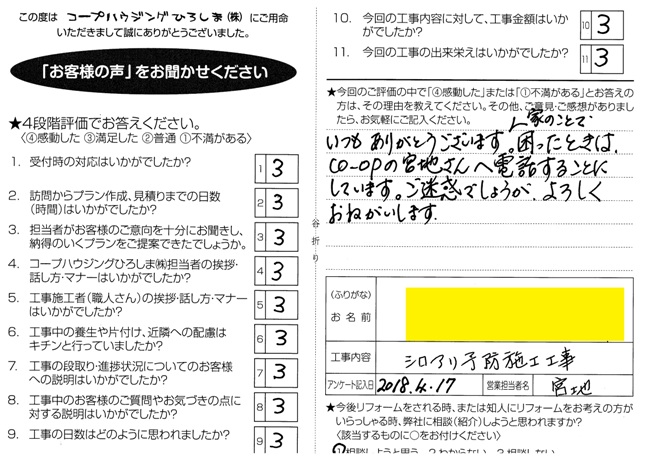 この度は コープハウジングひろしま(株) にご用命
いただきまして誠にありがとうございました。
「お客様の声」をお聞かせください
★4段階評価でお答えください。
〈④感動した ③満足した ②普通 ①不満がある〉
1. 受付時の対応はいかがでしたか？ 1 3
2. 訪問からプラン作成、見積りまでの日数
(時間)はいかがでしたか？ 2 3
3. 担当者がお客様のご意向を十分にお聞きし、
納得のいくプランをご提案できたでしょうか。 3 3
4. コープハウジングひろしま㈱担当者の挨拶・
話し方・マナーはいかがでしたか？ 4 3
5. 工事施工者(職人さん)の挨拶・話し方・マナー
はいかがでしたか？ 5 3
6. 工事中の養生や片付け、近隣への配慮は
キチンと行っていましたか？ 6 3
7. 工事の段取り・進捗状況についてのお客様
への説明はいかがでしたか？ 7 3
8. 工事中のお客様のご質問やお気づきの点に
対する説明はいかがでしたか？ 8 3
9. 工事の日数はどのように思われましたか？ 9 3
谷折り
10. 今回の工事内容に対して、工事金額はいか
がでしたか？ 10 3
11. 今回の工事の出来栄えはいかがでしたか？ 11 3
★今回のご評価の中で「④感動した」または「①不満がある」とお答えの
方は、その理由を教えてください。その他、ご意見・ご感想がありまし
たら、お気軽にご記入ください。
家のことで
いつも ありがとうございます。困ったときは、
CO-OPの宮地さんへ電話することに
しています。ご迷惑でしょうが、よろしく
おねがいします.
(ふりがな)
お名前
工事内容 シロアリ予防施工工事
アンケート記入日 2018.4.17 営業担当者名 宮地
★今後リフォームをされる時、または知人にリフォームをお考えの方が
いらっしゃる時、弊社に相談(紹介)しようと思われますか？
〈該当するものに○をお付けください〉
1.相談しようと思う 2.わからない 3.相談しない